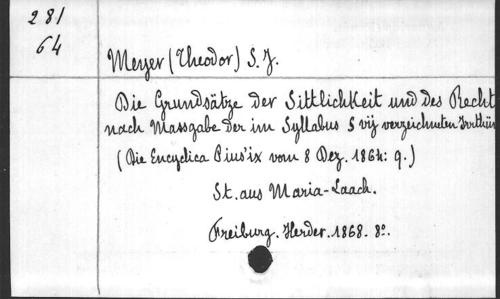 281
64
Meyer (Theodor) S. J.
Die Grundsätze der Sittlichkeit und des Recht
nach Massgabe der im Syllabus § vij verzeichneten Irrthüm
(Die Encyclica Pius' ix vom 8 Dez. 1864: 9.)
St. aus Maria-Laach.
Freiburg. Herder. 1868. 8º.